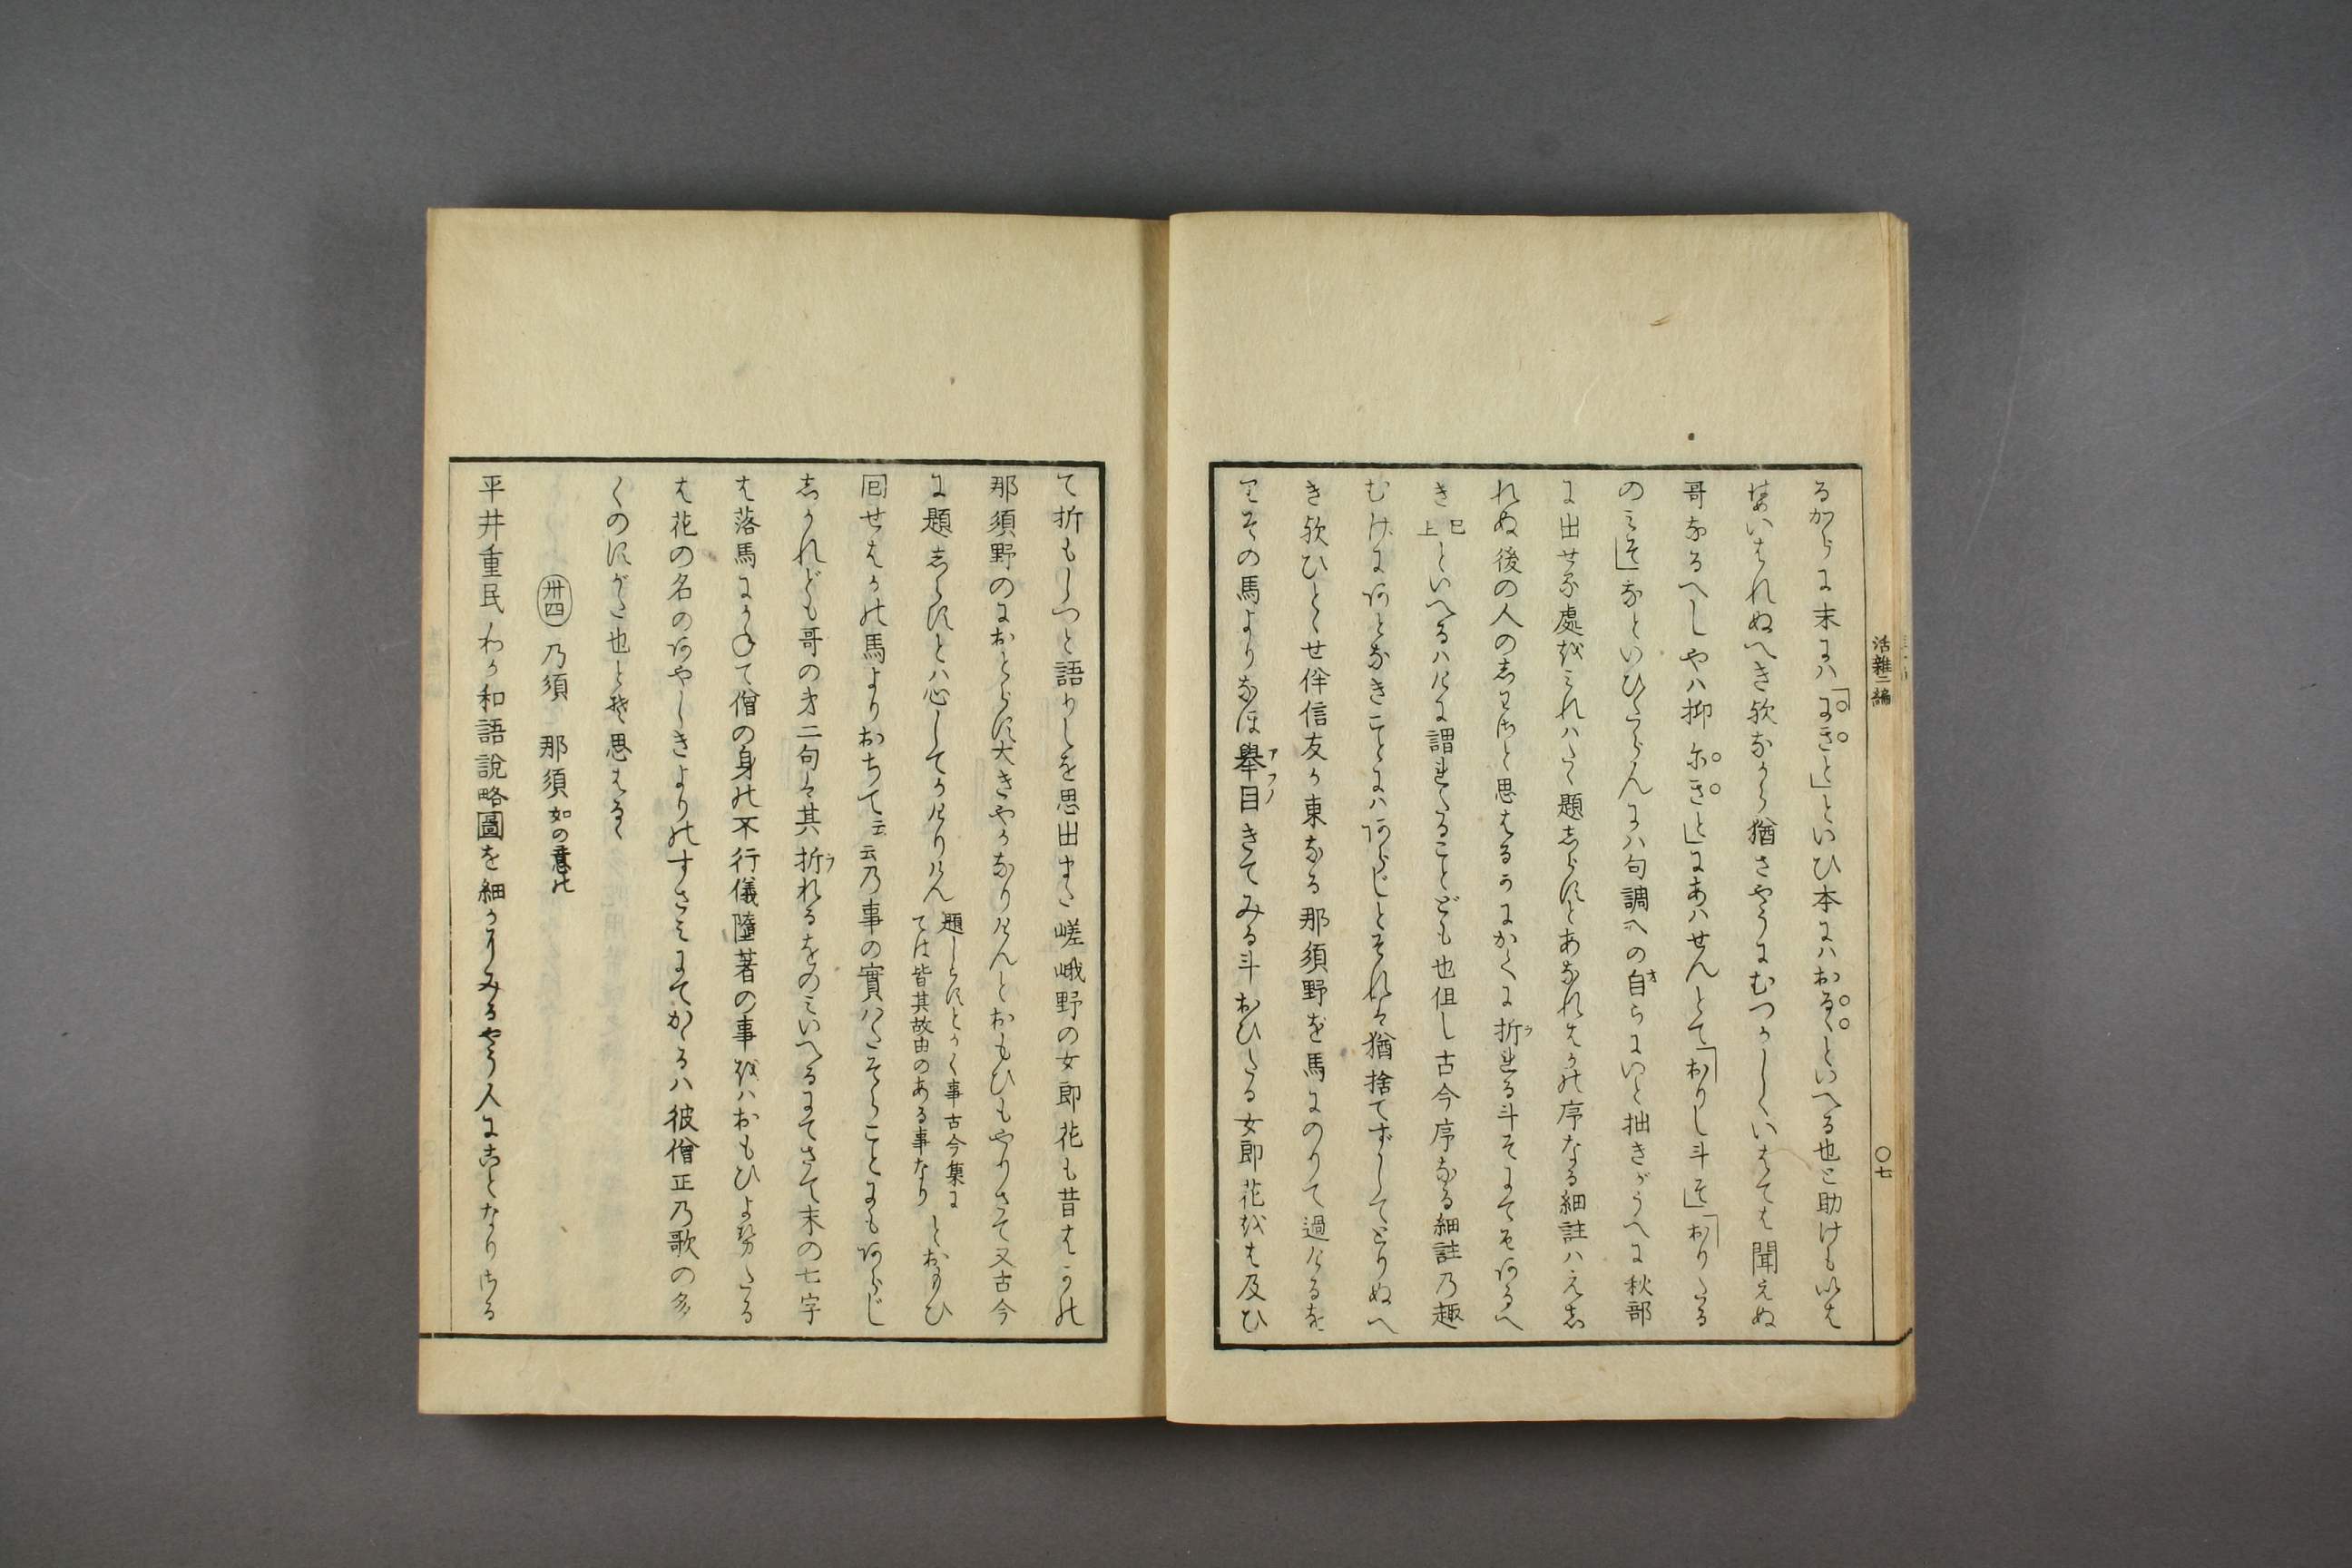 活雜二編
〇七
るからに末にハ「にきと」といひ本にハおるくといへる也と助けもいは
はいはれぬへき歟なから猶さやうにむつかしくいはても聞えぬ
哥なるへしやハ抑にきと」にあハせんとて「おりし斗そ」「おりたる
のミそ」なといひたらんにハ句調への自らにいと拙きがうへに秋部
に出せる處をミれハたゝ題しらすとあなれはかの序なる細註ハえし
れぬ後の人のしわさと思はるゝにかくに折る斗そにてそあるへ
き已上といへるハけに謂れたることども也但し古今序なる細註乃趣
むげにあとなきことにハあらじとそれは猶捨てずしてとりぬへ
き歟ひとゝせ伴信友か東なる那須野を馬にのりて過けるを
りその馬よりなほ擧目きてみる斗おひたる女郎花をは及ひ
て折もしつと語りしを思出また嵯峨野の女郎花も昔はかの
那須野のにおとらす大きやかなりけんとおもひもやりさて又古今
に題しらすとハ心してかけりけん題しらすとかく事古今集に
ては皆其故由のある事なりとおもひ
囘せはかの馬よりおちて云云乃事の實ハたそらことにもあらじ
しかれども哥の才二句は其折れるをのミいへるにてさて末の七字
は落馬にかねて僧の身の不行儀墮著の事をハおもひよせたる
は花の名のあやしきよりのすさミにてかゝるハ彼僧正乃歌の多
くのすがた也とぞ思はるゝ
卅四 乃須 那須如の意の
平井重民わか和語說略圖を細かにみるやう人にことなりける